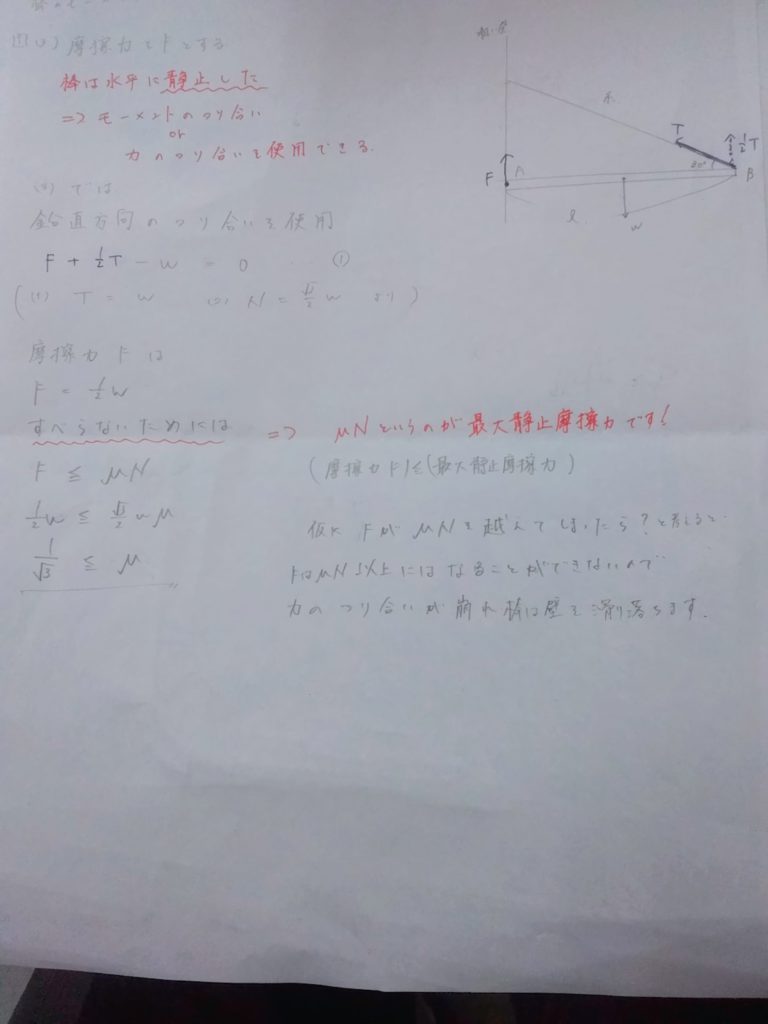 摩擦力をFとする
棒は水平に静止した
⇒ モーメントのつり合い
or
力のつり合いを使用できる.
(3) では
鉛直方向のつり合いを使用
F + 1/2 T - W = 0 … ①
((1) T = W (2) N = √3/2 W より)
摩擦力 F は
F = 1/2 W
すべらないためには ⇒ μNというのが最大静止摩擦力です!
F ≦ μN (摩擦力F)≦(最大静止摩擦力)
1/2 W ≦ √3/2 W μ
1/√3 ≦ μ
仮に FがμNを越えてしまったら?と考えると
FはμN以上にはなることができないので
力のつり合いが崩れ棒は壁を滑り落ちます.
T
1/2 T
30°
F
A
B
l
W